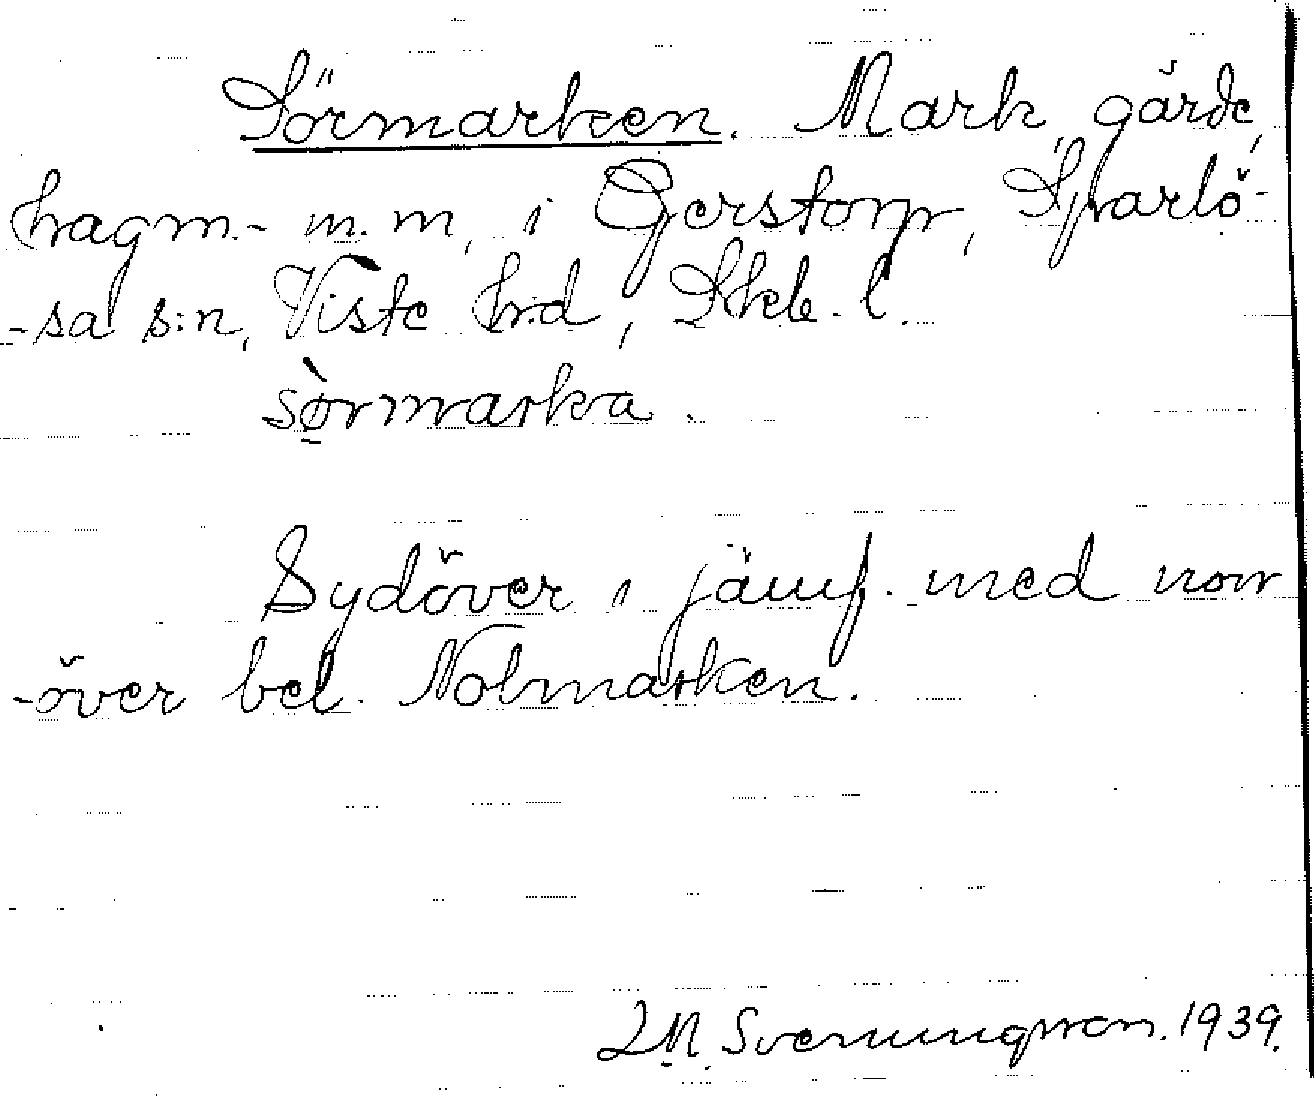 Sörmarken. Mark, gärde,
hagm.- m. m, i Gerstorp, Sparlö-
-sa s:n, Viste hrd, Skb. l.
sòrmarka.
Sydöver i jämf. med norr
-över bel. Nolmarken.
Svenungsson. 1939.